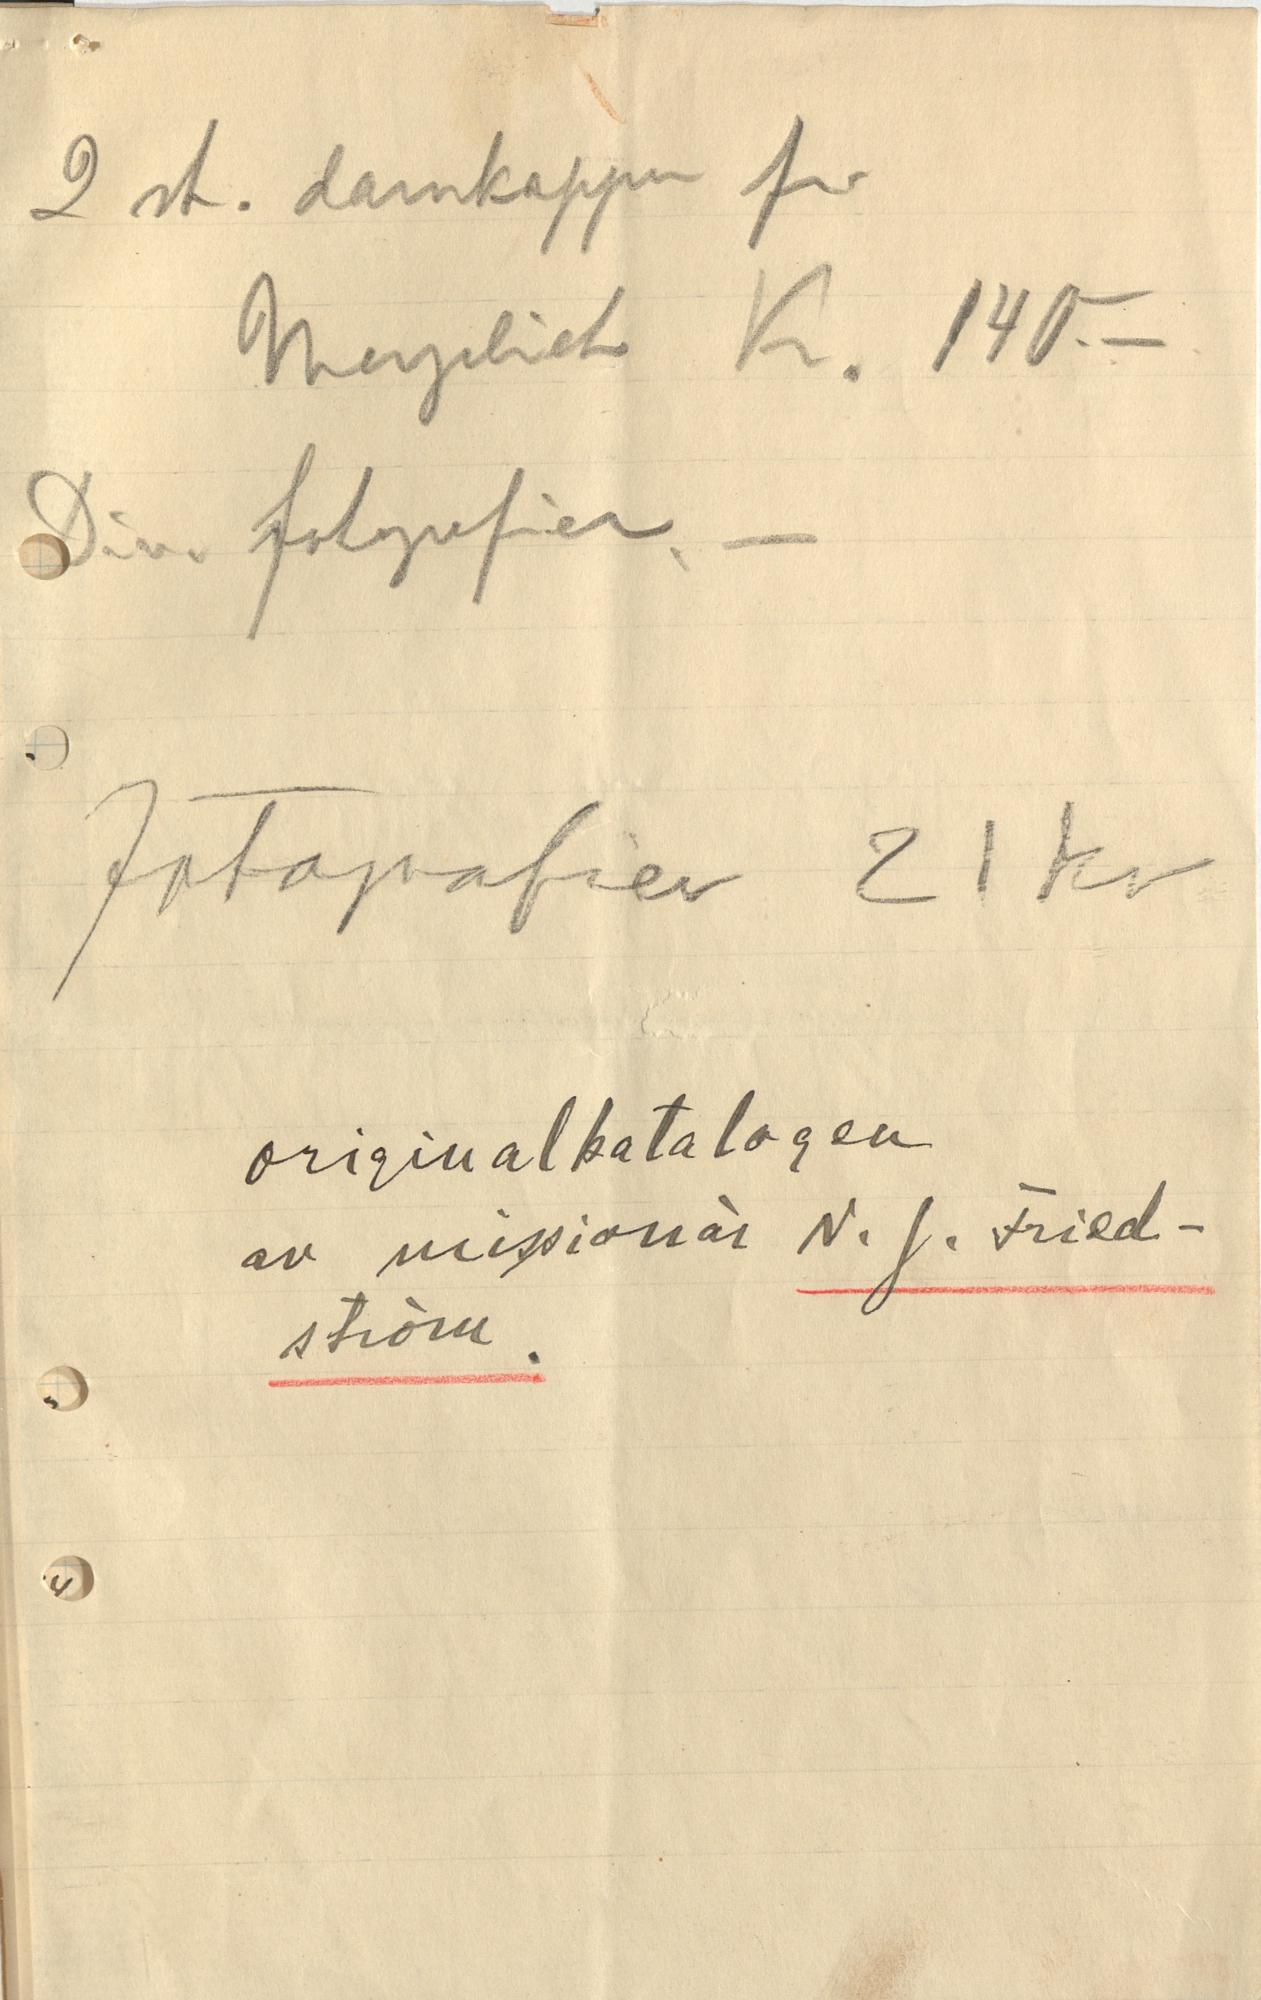 2 st. damkappor fr
Kr. 140.—
Div. fotografier. —
Fotografier 21 kr
originalkatalogen
av missionär N. J. Fried-
ström.